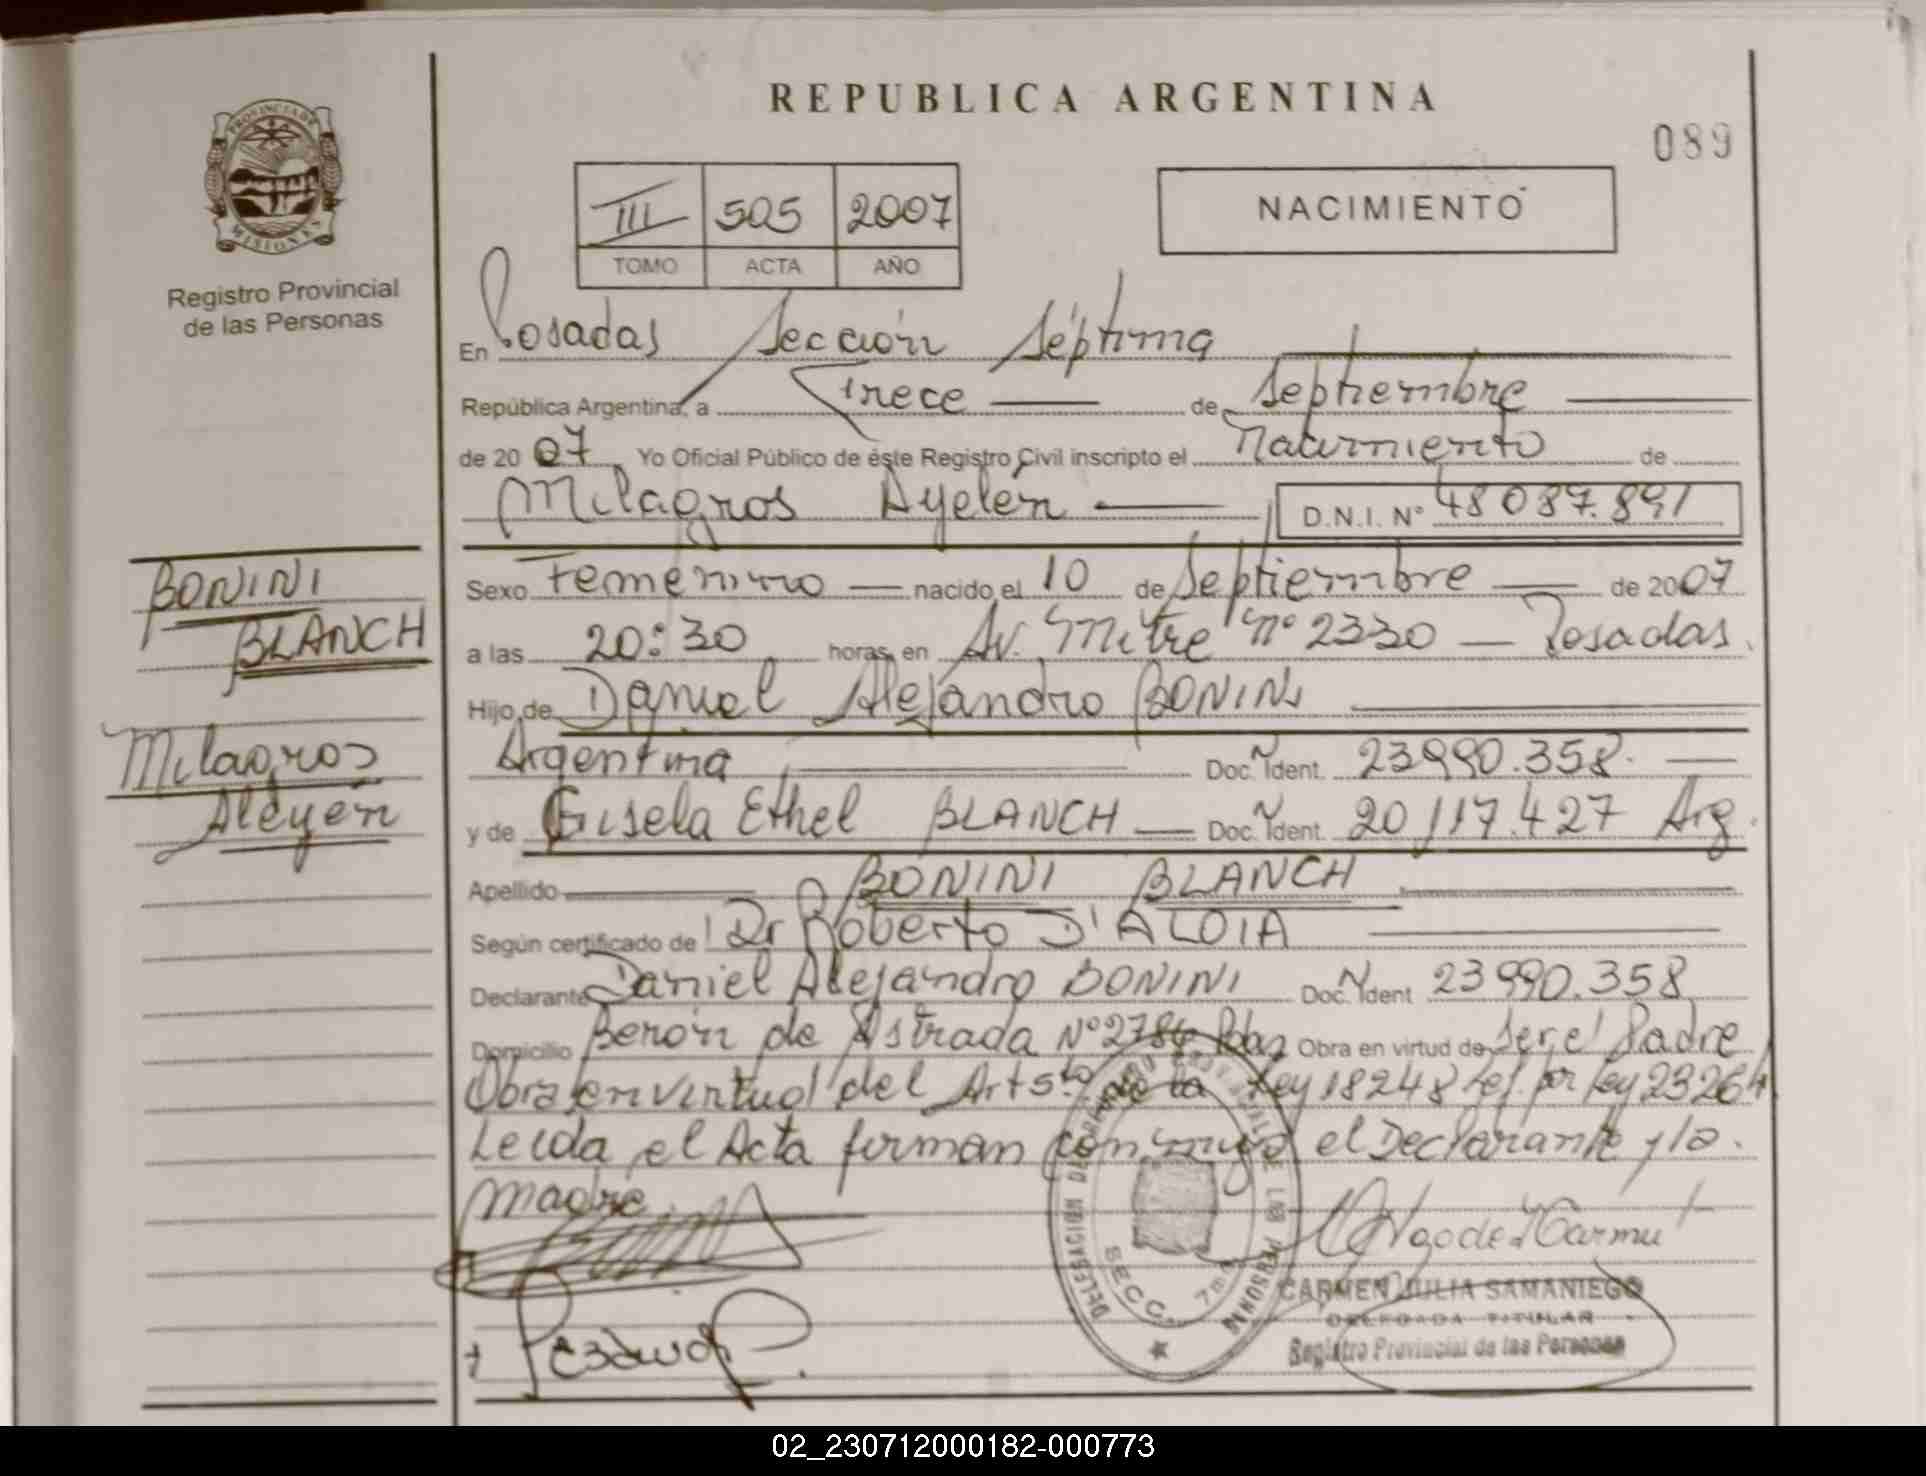 REPUBLICA ARGENTINA
089
PROVINCIA DE
MISIONES
Registro Provincial
de las Personas
III 505 2007
TOMO ACTA AÑO
NACIMIENTO
En Posadas Sección Séptima
República Argentina, a Trece de Septiembre
de 2007 Yo Oficial Público de éste Registro Civil inscripto el Nacimiento de
Milagros Ayelén D.N.I. Nº 48087.891
BONINI
BLANCH
Milagros
Aleyén
Sexo Femenino nacido el 10 de Septiembre de 2007
a las 20:30 horas, en Av. Mitre Nº 2330 — Posadas.
Hijo de Daniel Alejandro BONINI
Argentina Doc. Ident. 23990.358.
y de Gisela Ethel BLANCH — Doc. Ident. 20.117.427 Arg.
Apellido BONINI BLANCH
Según certificado de Dr Roberto D'ALOIA
Declarante Daniel Alejandro BONINI Doc. Ident 23990.358
Domicilio Berón de Astrada Nº 2784 Pdas Obra en virtud de Ser el Padre
Obra en virtud del Art 5to de la Ley 18248 Ref. por Ley 23264
Leída el Acta firman conmigo el Declarante y la
Madre.
DELEGACION DE LAS PERSONAS
SECC. 7ma
CARMEN JULIA SAMANIEGO
DELEGADA TITULAR
Registro Provincial de las Personas
02_230712000182-000773